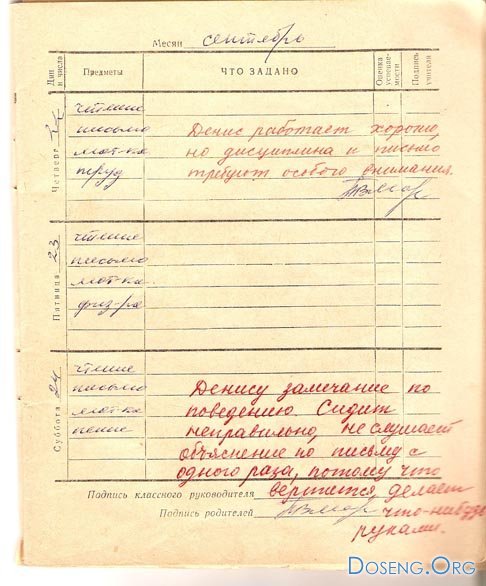 Месяц сентябрь
Дни и числа Предметы ЧТО ЗАДАНО Оценка успеваемости Подпись учителя
Четверг 22
чтение
письмо
мат-ка
труд
Денис работает хорошо,
но дисциплина и письмо
требуют особого внимания.
Пятница 23
чтение
письмо
мат-ка.
физ-ра
Суббота 24
чтение
письмо
мат-ка
пение
Денису замечание по
поведению. Сидит
неправильно, не слушает
объяснение по письму с
одного раза, потому что
вертится, делает
что-нибудь
руками.
Подпись классного руководителя
Подпись родителей
Doseng.Org